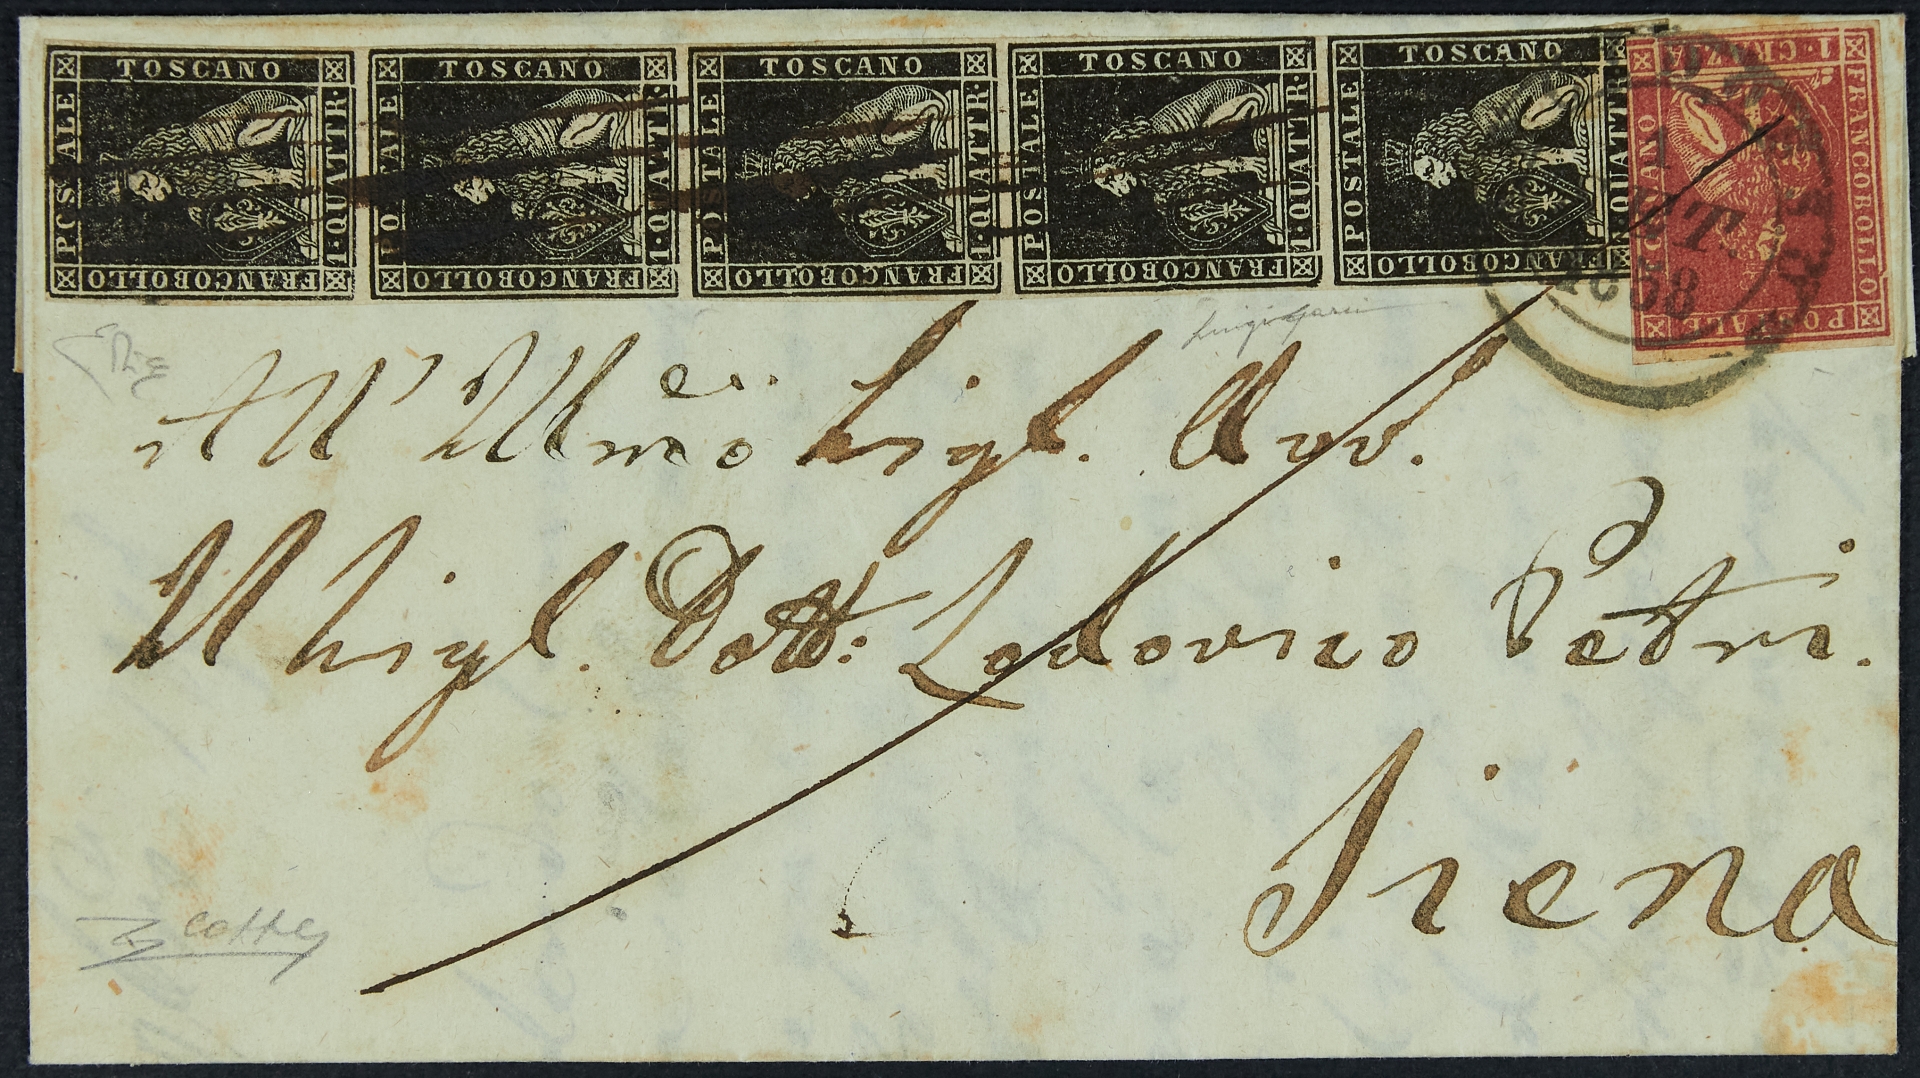 TOSCANO POSTALE 1·QUATTR· FRANCOBOLLO
TOSCANO POSTALE 1·QUATTR· FRANCOBOLLO
TOSCANO POSTALE 1·QUATTR· FRANCOBOLLO
TOSCANO POSTALE 1·QUATTR· FRANCOBOLLO
TOSCANO POSTALE QUATTR· FRANCOBOLLO
FRANCOBOLLO TOSCANO POSTALE 1·CRAZIA
1
58
All' Illmo Sigl. Avv.
Il Sigl. Dott: Lodovico Petri.
Siena